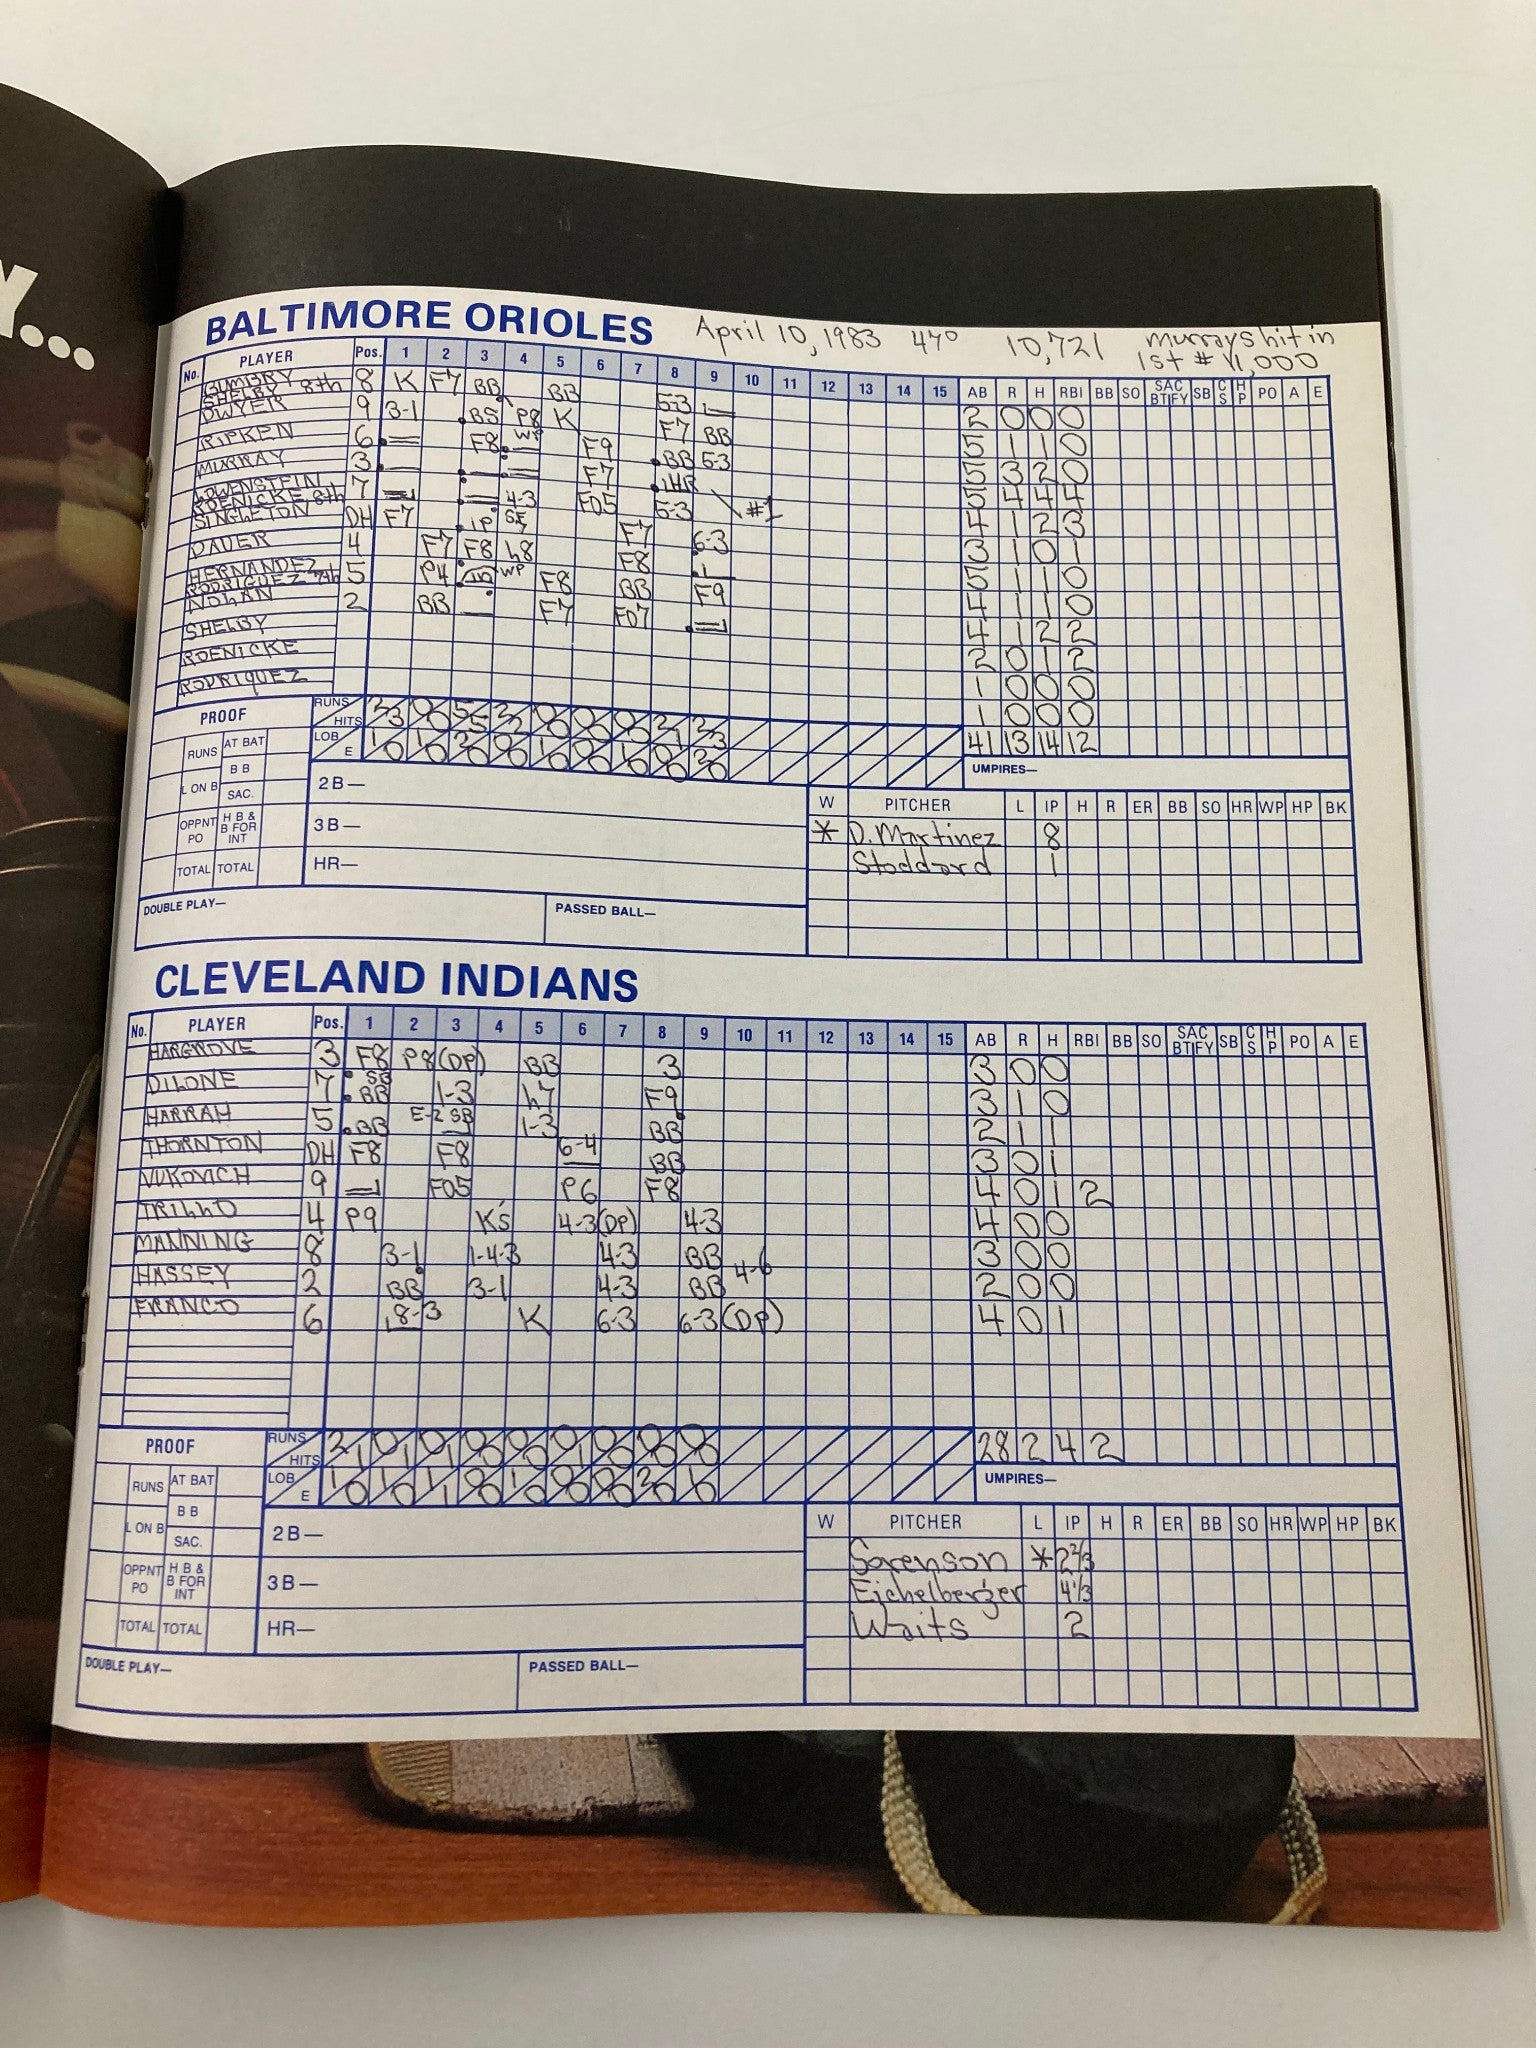 Y...
BALTIMORE ORIOLES April 10, 1983 47° 10,721 Murrays hit in
1st # 11,000
No. PLAYER Pos. 1 2 3 4 5 6 7 8 9 10 11 12 13 14 15 AB R H RBI BB SO SAC BT FY SB CS HP PO A E
BUMBRY 8 K F7 BB BB
SHELBY 8th 5-3 2 0 0 0
DWYER 9 3-1 BS P8 WP K F7 BB 5 1 1 0
RIPKEN 6 F8 F9 BB 5-3 5 3 2 0
MURRAY 3 F7 1HR #1 5 4 4 4
LOWENSTEIN 7 4-3 F05 5-3 4 1 2 3
ROENICKE 8th
SINGLETON DH F7 IP SF7 F7 6-3 3 1 0 1
DAUER 4 F7 F8 h8 F8 5 1 1 0
HERNANDEZ 5 P4 WP F8 BB F9 4 1 1 0
RODRIGUEZ 7th
NOLAN 2 BB F7 F07 4 1 2 2
SHELBY 2 0 1 2
ROENICKE 1 0 0 0
RODRIQUEZ 1 0 0 0
PROOF RUNS HITS 2/3 0/0 5/5 2/2 0/0 0/0 0/0 2/1 2/3
RUNS AT BAT LOB E 1/0 1/0 2/0 0/0 1/0 0/0 1/0 0/0 2/0 41 13 14 12
B B UMPIRES—
L ON B SAC. 2B—
OPPNT PO H B & B FOR INT 3B—
TOTAL TOTAL HR—
DOUBLE PLAY— PASSED BALL—
W PITCHER L IP H R ER BB SO HR WP HP BK
* D. Martinez 8
Stoddard 1
CLEVELAND INDIANS
No. PLAYER Pos. 1 2 3 4 5 6 7 8 9 10 11 12 13 14 15 AB R H RBI BB SO SAC BT FY SB CS HP PO A E
HARGROVE 3 F8 P8(DP) BB 3 3 0 0
DILONE 7 SB BB 1-3 h7 F9 3 1 0
HARRAH 5 BB E-2 SB 1-3 BB 2 1 1
THORNTON DH F8 F8 6-4 BB 3 0 1
VUKOVICH 9 F05 P6 F8 4 0 1 2
TRILLO 4 P9 K's 4-3(DP) 4-3 4 0 0
MANNING 8 3-1 1-4-3 4-3 BB 3 0 0
HASSEY 2 BB 3-1 4-3 BB 4-6 2 0 0
FRANCO 6 8-3 K 6-3 6-3(DP) 4 0 1
PROOF RUNS HITS 2/1 0/1 0/1 0/0 0/0 0/1 0/0 0/0 0/0 28 2 4 2
RUNS AT BAT LOB E 1/0 1/0 1/1 0/0 1/0 0/0 0/0 2/0 1/0 UMPIRES—
B B
L ON B SAC. 2B—
OPPNT PO H B & B FOR INT 3B—
TOTAL TOTAL HR—
DOUBLE PLAY— PASSED BALL—
W PITCHER L IP H R ER BB SO HR WP HP BK
Sorenson * 2 2/3
Eichelberger 4 1/3
Waits 2